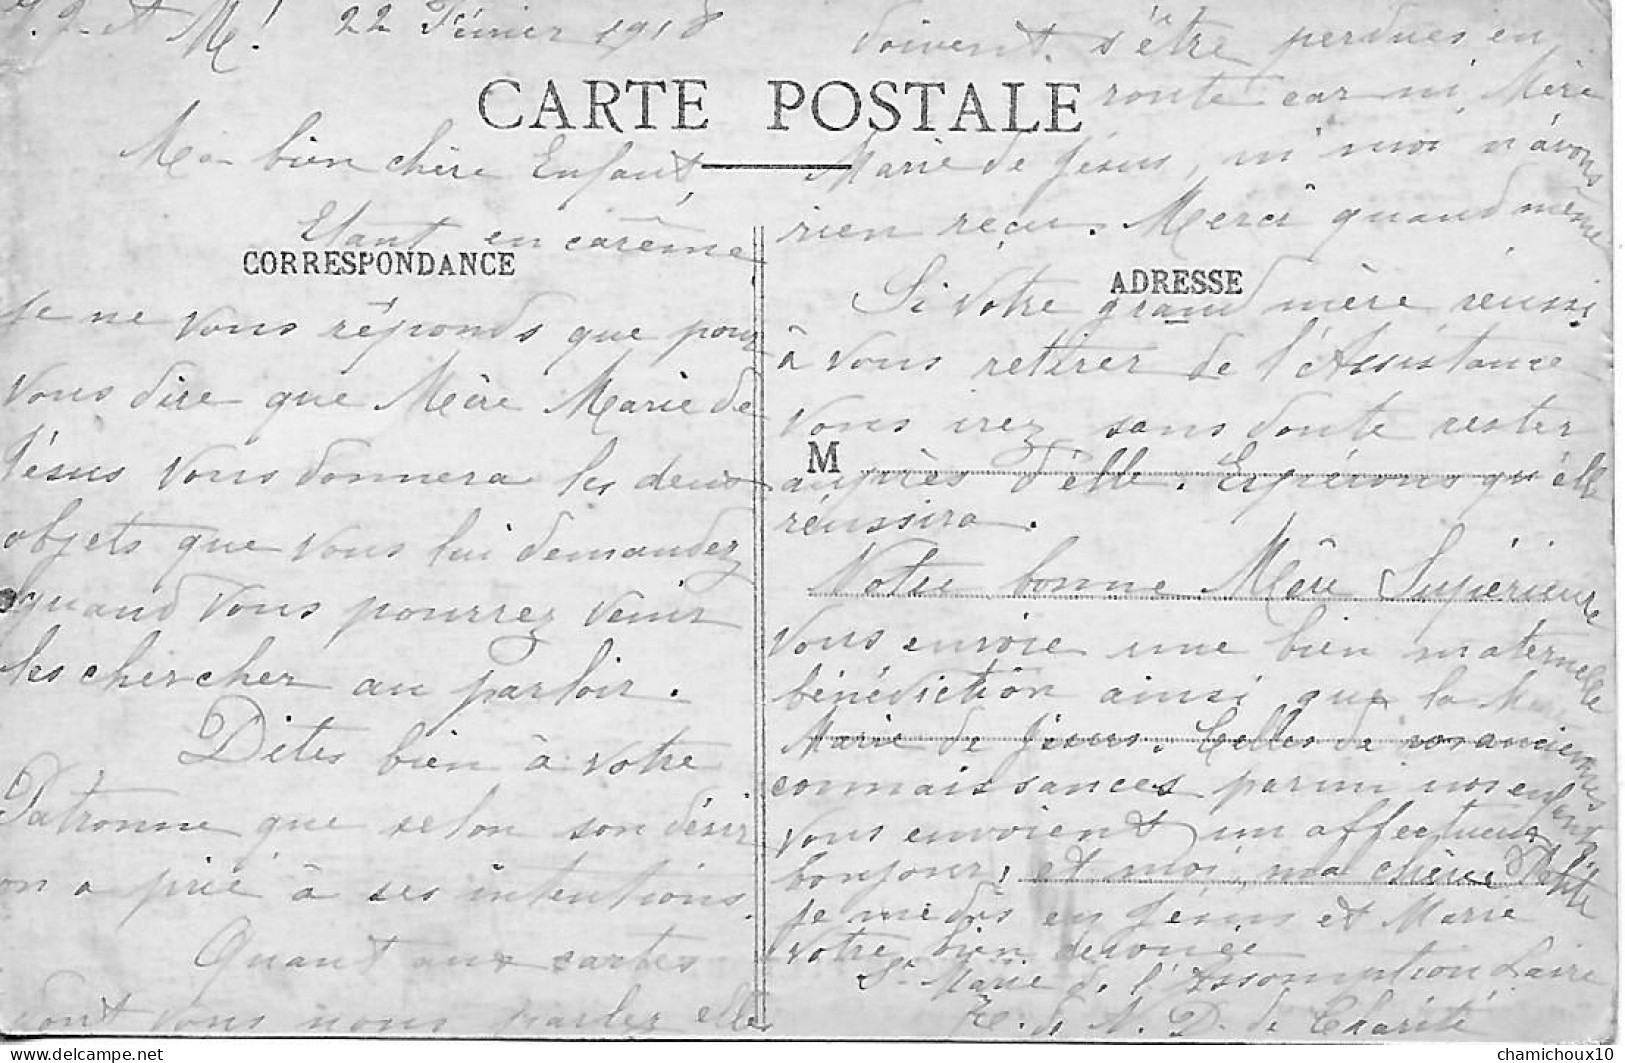 J. J. et M! 22 Février 1918
CARTE POSTALE
Ma bien chère Enfant,
Etant en carême
CORRESPONDANCE
je ne vous réponds que pour
vous dire que Mère Marie de
Jésus vous donnera les deux
objets que vous lui demandez
quand vous pourrez venir
les chercher au parloir.
Dites bien à votre
Patronne que selon son désir
on a prié à ses intentions.
Quant aux cartes
dont vous nous parlez elles
doivent s'être perdues en
route car ni Mère
Marie de Jésus, ni moi n'avons
rien reçu. Merci quand même
ADRESSE
Si votre grand mère réussi
à vous retirer de l'Assistance
vous irez sans doute rester
M
auprès d'elle. Espérons qu'elle
réussira.
Notre bonne Mère Supérieure
vous envoie une bien maternelle
bénédiction ainsi que la Mère
Marie de Jésus. Celles de vos anciennes
connaissances parmi nos enfants
vous envoient un affectueux
bonjour, et moi, ma chère Petite
je me dis en Jésus et Marie
votre bien dévouée
Sr Marie de l'Assomption
R. de N. D. de Charité
chamichoux10